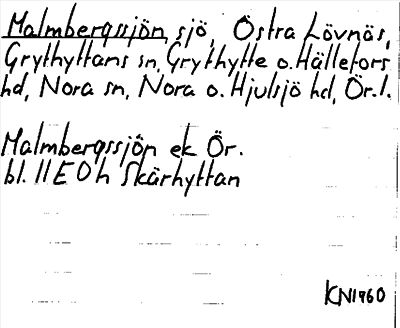 Malmbergssjön, sjö, Östra Lövnäs,
Grythyttans sn, Grythytte o. Hällefors
hd, Nora sn, Nora o. Hjulsjö hd, Ör. l.
Malmbergssjön ek Ör.
bl. 11E0h Skärhyttan
KN1960